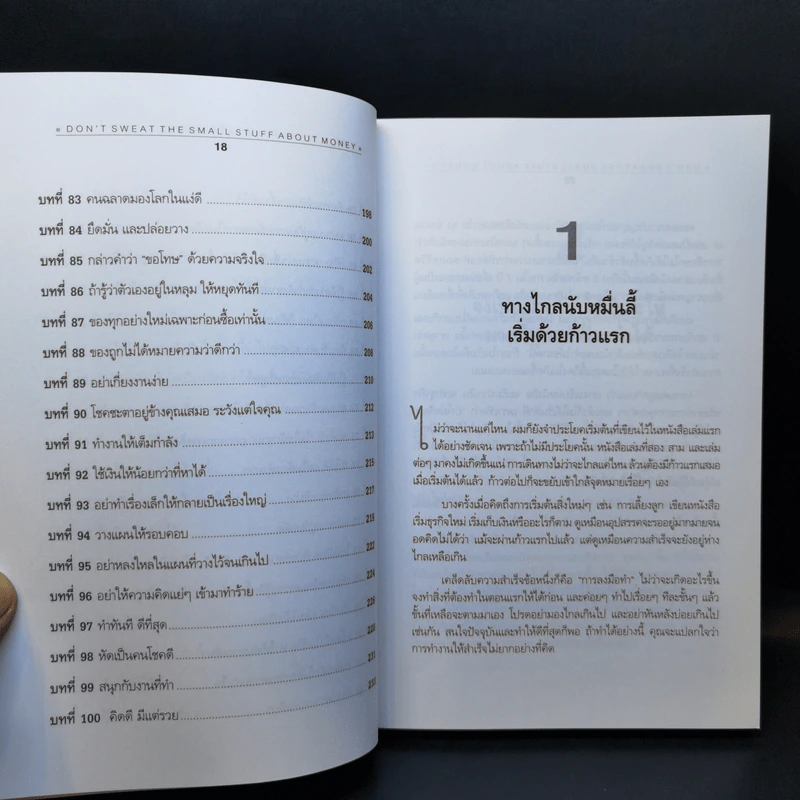 DON'T SWEAT THE SMALL STUFF ABOUT MONEY
18
บทที่ 83 คนฉลาดมองโลกในแง่ดี 198
บทที่ 84 ยึดมั่น และปล่อยวาง 200
บทที่ 85 กล่าวคำว่า "ขอโทษ" ด้วยความจริงใจ 202
บทที่ 86 ถ้ารู้ว่าตัวเองอยู่ในหลุม ให้หยุดทันที 204
บทที่ 87 ของทุกอย่างใหม่เฉพาะก่อนซื้อเท่านั้น 206
บทที่ 88 ของถูกไม่ได้หมายความว่าดีกว่า 208
บทที่ 89 อย่าเกี่ยงงานง่าย 210
บทที่ 90 โชคชะตาอยู่ข้างคุณเสมอ ระวังแต่ใจคุณ 212
บทที่ 91 ทำงานให้เต็มกำลัง 213
บทที่ 92 ใช้เงินให้น้อยกว่าที่หาได้ 215
บทที่ 93 อย่าทำเรื่องเล็กให้กลายเป็นเรื่องใหญ่ 217
บทที่ 94 วางแผนให้รอบคอบ 219
บทที่ 95 อย่าหลงใหลในแผนที่วางไว้จนเกินไป 222
บทที่ 96 อย่าให้ความคิดแย่ๆ เข้ามาทำร้าย 224
บทที่ 97 ทำทันที ดีที่สุด 226
บทที่ 98 หัดเป็นคนโชคดี
บทที่ 99 สนุกกับงานที่ทำ
บทที่ 100 คิดดี มีแต่รวย
1
ทางไกลนับหมื่นลี้
เริ่มด้วยก้าวแรก
ไม่ว่าจะนานแค่ไหน ผมก็ยังจำประโยคเริ่มต้นที่เขียนไว้ในหนังสือเล่มแรก
ได้อย่างชัดเจน เพราะถ้าไม่มีประโยคนั้น หนังสือเล่มที่สอง สาม และเล่ม
ต่อๆ มาคงไม่เกิดขึ้นแน่ การเดินทางไม่ว่าจะไกลแค่ไหน ล้วนต้องมีก้าวแรกเสมอ
เมื่อเริ่มต้นได้แล้ว ก้าวต่อไปก็จะขยับเข้าใกล้จุดหมายเรื่อยๆ เอง
บางครั้งเมื่อคิดถึงการเริ่มต้นสิ่งใหม่ๆ เช่น การเลี้ยงลูก เขียนหนังสือ
เริ่มธุรกิจใหม่ เริ่มเก็บเงินหรืออะไรก็ตาม ดูเหมือนอุปสรรคจะรออยู่มากมายจน
อดคิดไม่ได้ว่า แม้จะผ่านก้าวแรกไปแล้ว แต่ดูเหมือนความสำเร็จจะยังอยู่ห่าง
ไกลเหลือเกิน
เคล็ดลับความสำเร็จข้อหนึ่งก็คือ "การลงมือทำ" ไม่ว่าจะเกิดอะไรขึ้น
จงทำสิ่งที่ต้องทำในตอนแรกให้ได้ก่อน และค่อยๆ ทำไปเรื่อยๆ ทีละขั้นๆ แล้ว
ขั้นที่เหลือจะตามมาเอง โปรดอย่ามองไกลเกินไป และอย่าหันหลังบ่อยเกินไป
เช่นกัน สนใจปัจจุบันและทำให้ดีที่สุดก็พอ ถ้าทำได้อย่างนี้ คุณจะแปลกใจว่า
การทำงานให้สำเร็จไม่ยากอย่างที่คิด